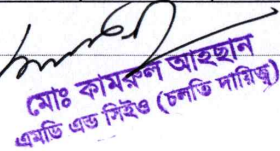 মোঃ কামরুল আহছান
এমডি এন্ড সিইও (চলতি দায়িত্ব)